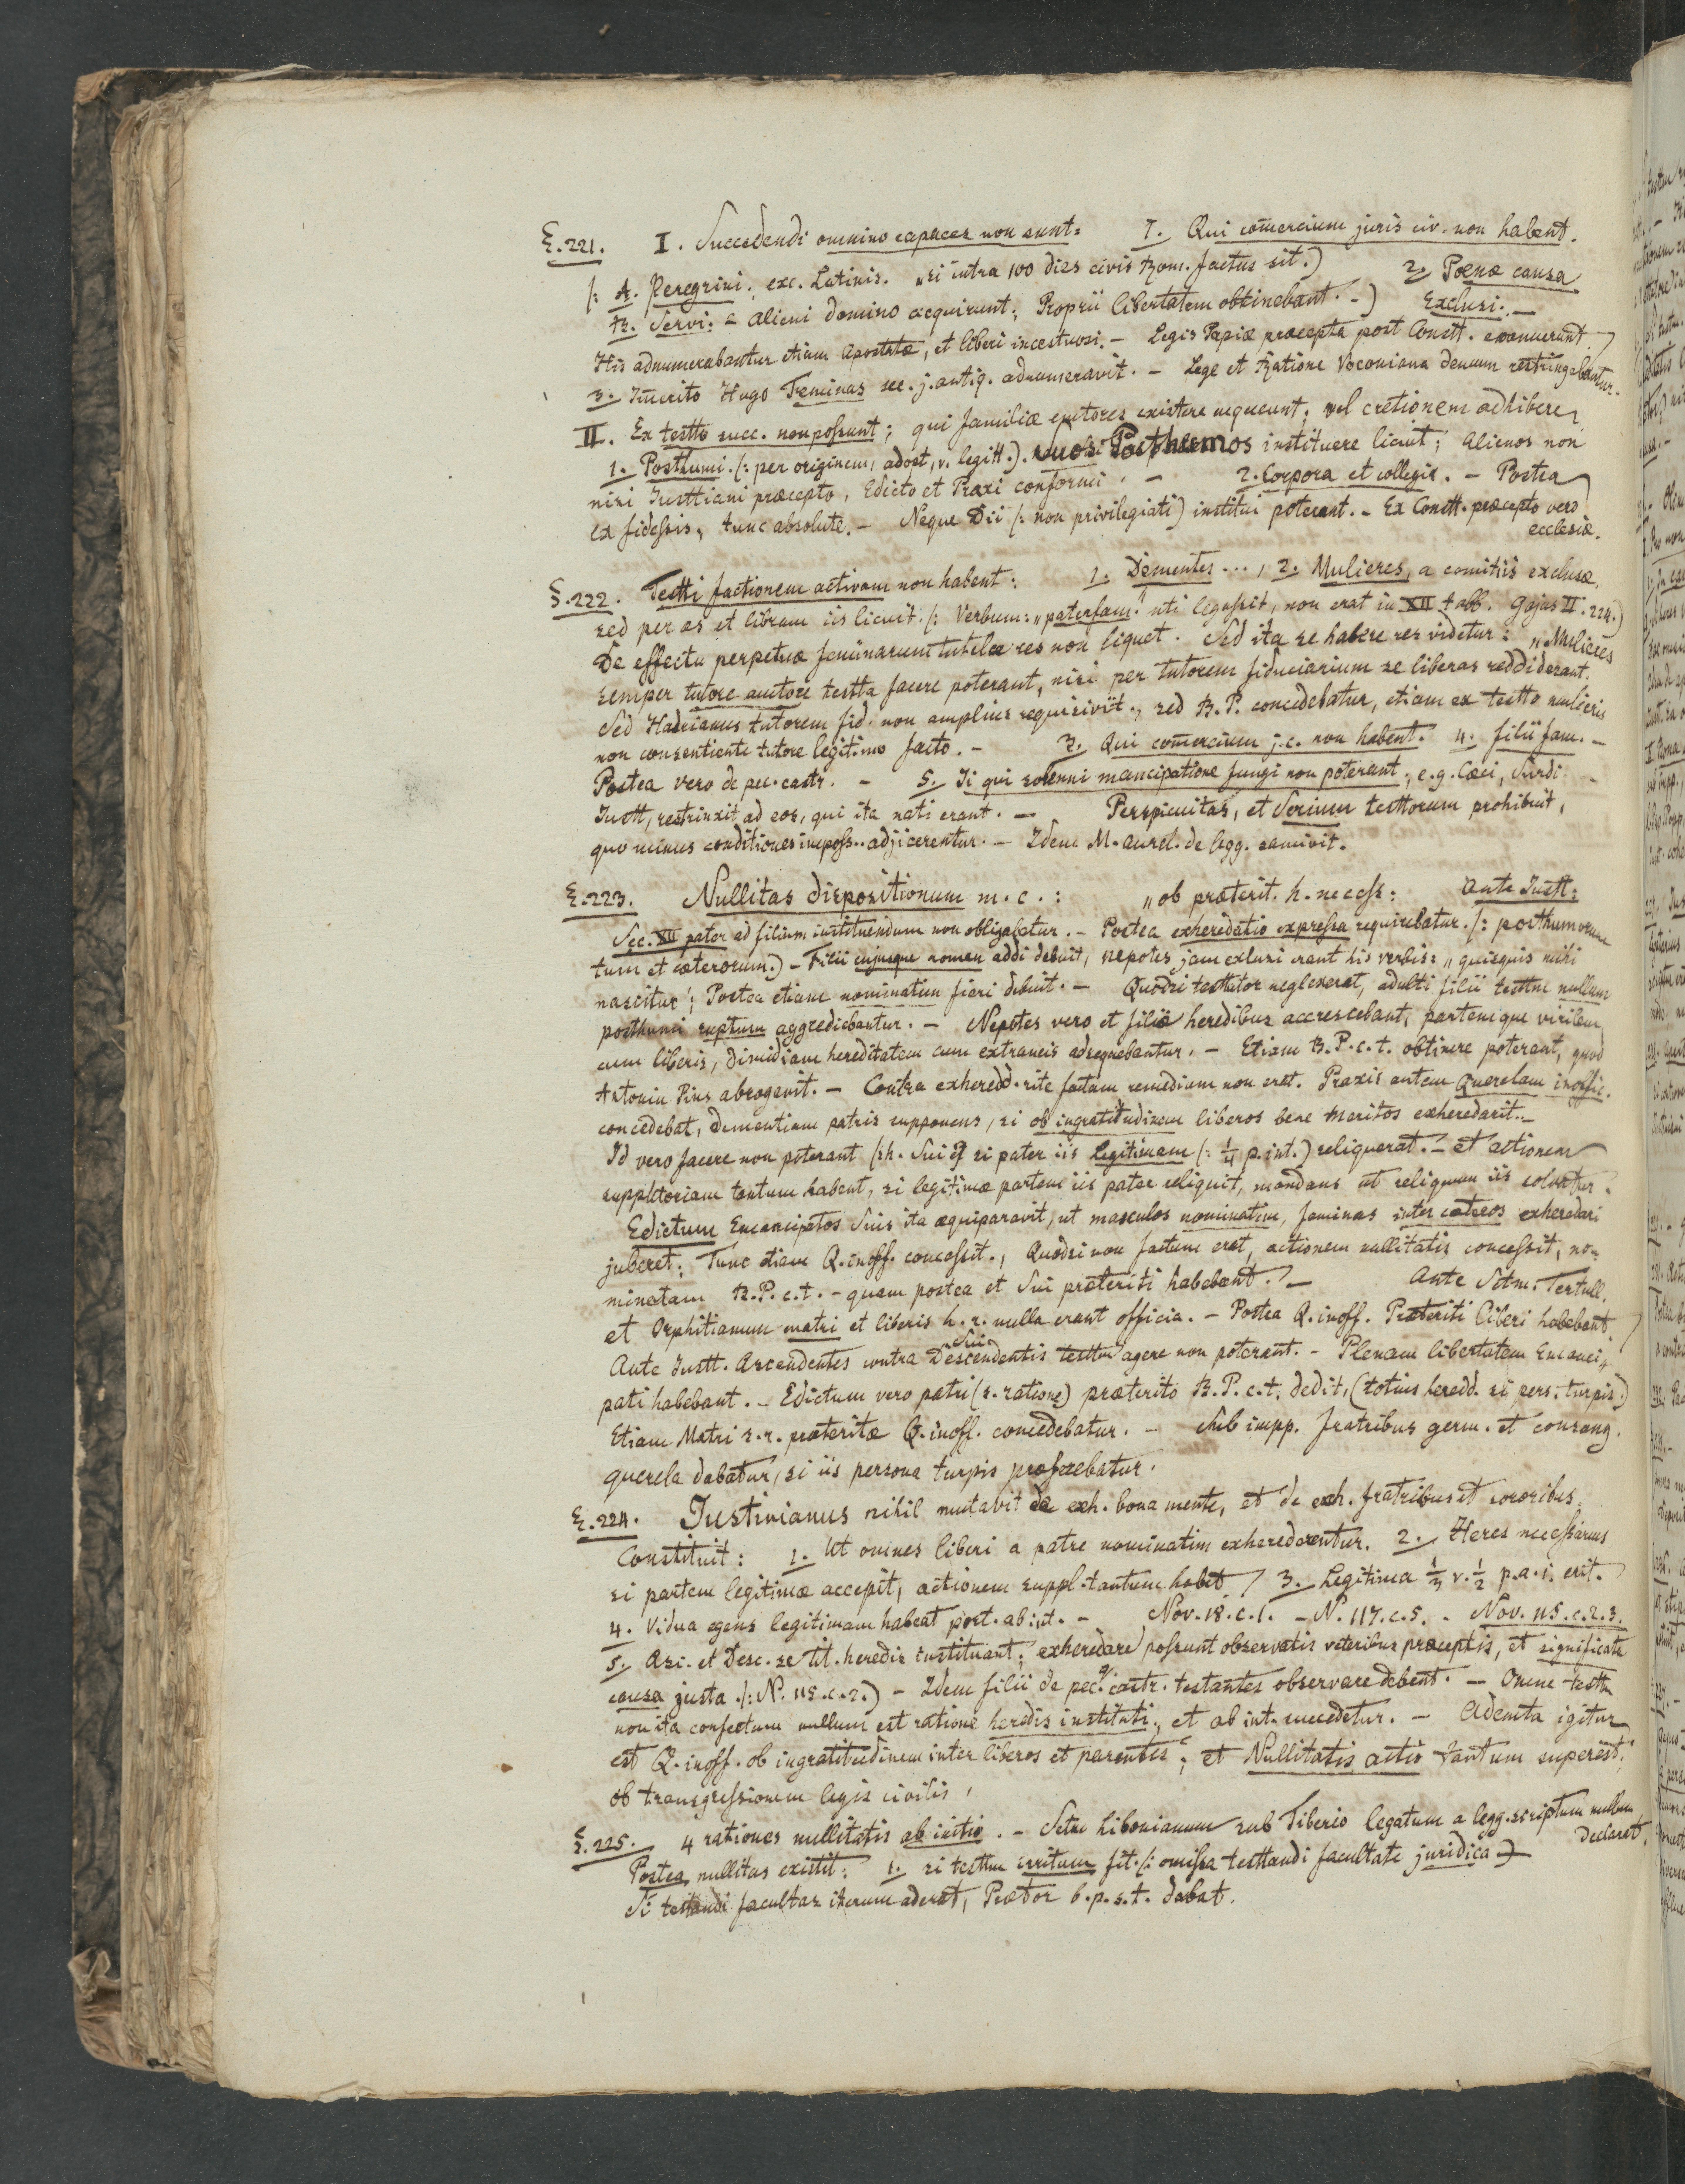 §.221. I. Succedendi omnino capaces non sunt: 1. Qui com̄ercium juris civ. non habent.
(: A. Peregrini., exc. Latinis. „si intra 100 dies civis Rom. factus sit.) 2. Poenæ causa
B. Servi: – alieni domino acquirunt; Proprii libertatem obtinebant. –) Exclusi. –
His adnumerabantur etiam Apostatæ, et liberi incestuosi. – Legis Papiæ præcepta post Constt. evanuerunt.
3. Im̄erito Hugo Feminas sec. j. antiq. adnumeravit. – Lege et Ratione Voconiana demum restringebantur.
II. Ex testto succ. non possunt; qui familiæ emtores existere nequeunt; vel cretionem adhibere,
1. Posthumi. (: per originem, adopt, v. legitt.). suos Posthumos instituere licuit; Alienos non
nisi Justtiani præcepto, Edicto et Praxi conformi. – 2. Corpora et collegia. – Postea
ex fideissis, tunc absolute. – Neque Dii (: non privilegiati) institui poterant. – Ex Constt. præcepto vero
ecclesiæ.
§.222. Testti factionem activam non habent: 1. Dementes ..., 2. Mulieres, a comitiis exclusæ,
sed per æs et libram iis licuit. (: Verbum: „paterfam." uti legassit, non erat in XII tabb. Gajus II. 224.)
De effectu perpetuæ feminarum tutelæ res non liquet. Sed ita se habere res videtur: „Mulieres
semper tutore auctore testta facere poterant, nisi per tutorem fiduciarium se liberas reddiderant.
Sed Hadrianus tutorem fid. non amplius requisiviit., sed B. P. concedebatur, etiam ex testto mulieris
non consentiente tutore legitimo facto. – 3. Qui com̄ercium j. c. non habent. 4. filii fam. –
Postea vero de pec. castr. – 5. Ii qui solenni mancipatione fungi non poterant, e.g. Cæci, Surdi –
Justt, restrinxit ad eos, qui ita nati erant. – Perspicuitas, et Serium testtorum prohibuit,
quo minus conditiones imposs.. adjicerentur. – Idem M. Aurel. de legg. sanivit.
§.223. Nullitas dispositionum m. c.: „ob præterit. h. necess: Ante Justt:
Sec. XII pater ad filium instituendum non obligabatur. – Postea exheredatio expressa requirebatur. (: posthumorum
tum et cæterorum.) – Filii cujusque nomen addi debuit, nepotes jam exlusi erant his verbis: „quisquis mihi
nascitur"; Postea etiam nominatim fieri debuit. – Quodsi testtator neglexerat, adulti filii testtm nullum
posthumi ruptum aggrediebantur. – Nepotes vero et filiæ heredibus accrescebant, partemque virilem
cum liberis, dimidiam hereditatem cum extraneis adsequebantur. – Etiam B. P. c. t. obtinere poterant, quod
Antonin Pius abrogavit. – Contra exheredd. rite factam remedium non erat. Praxis autem Querelam inoffic.
concedebat, dementiam patris supponens, si ob ingratitudinem liberos bene meritos exheredarit. –
Id vero facere non poterant (: h. Sui :) si pater iis Legitimam (: ¼ p. int.) reliquerat. – et actionem
suppletoriam tantum habent, si legitimæ partem iis pater reliquit, mandans ut reliquum iis solvatur.
Edictum Emancipatos Suis ita æquiparavit, ut masculos nominatim, feminas inter cæteros exheredari
juberet; Tunc etiam Q. inoff. concessit., Quodsi non factum erat, actionem nullitatis concessit, no-
minatam B. P. c. t. – quam postea et Sui præteriti habebant. – Ante Sctm. Tertull.
et Orphitianum matri et liberis h. r. nulla erant officia. – Postea Q. inoff. Præteriti liberi habebant
Ante Justt. Ascendentes contra Descendentis sui testtm agere non poterant. – Plenam libertatem Emanci-
pati habebant. – Edictum vero patri (s. ratione) præterito B. P. c. t. dedit, (totius heredd. si pers. turpis.)
Etiam Matri s. r. præteritæ Q. inoff. concedebatur. – Sub impp. fratribus germ. et consang.
querela dabatur, si iis persona turpis præferebatur.
§.224. Justinianus nihil mutavit de exh. bona mente, et de exh. fratribus et sororibus.
Constituit: 1. Ut omnes liberi a patre nominatim exheredarentur. 2. Heres necessarius
si partem legitimæ accepit, actionem suppl. tantum habet 3. Legitima ⅓ v. ½ p. a. i. erit.
4. Vidua egens legitimam habeat port. ab int. – Nov. 18. c. 1. – N. 117. c. 5. – Nov. 115. c. 2. 3.
5. Asc. et Desc. se tit. heredis instituant; exheredare possunt observatis veteribus præceptis, et significata
causa justa. (: N. 115. c. 2.) – Idem filii de pec. q. castr. testantes observare debent. – Omne testtm
non ita confectum nullum est ratione heredis instituti., et ab int. succedetur. – Ademta igitur
est Q. inoff. ob ingratitudinem inter liberos et parentes; et Nullitatis actio tantum superest,
ob transgressionem legis civilis,
§.225. 4 rationes nullitatis ab initio. – Sctm Libonianum sub Tiberio legatum a legg. scriptum nullum
declarat.
Postea nullitas existit: 1. si testtm irritum fit. (: omissa testtandi facultate juridica :)
Si testandi facultas iterum aderat, Prætor b. p. s. t. dabat.